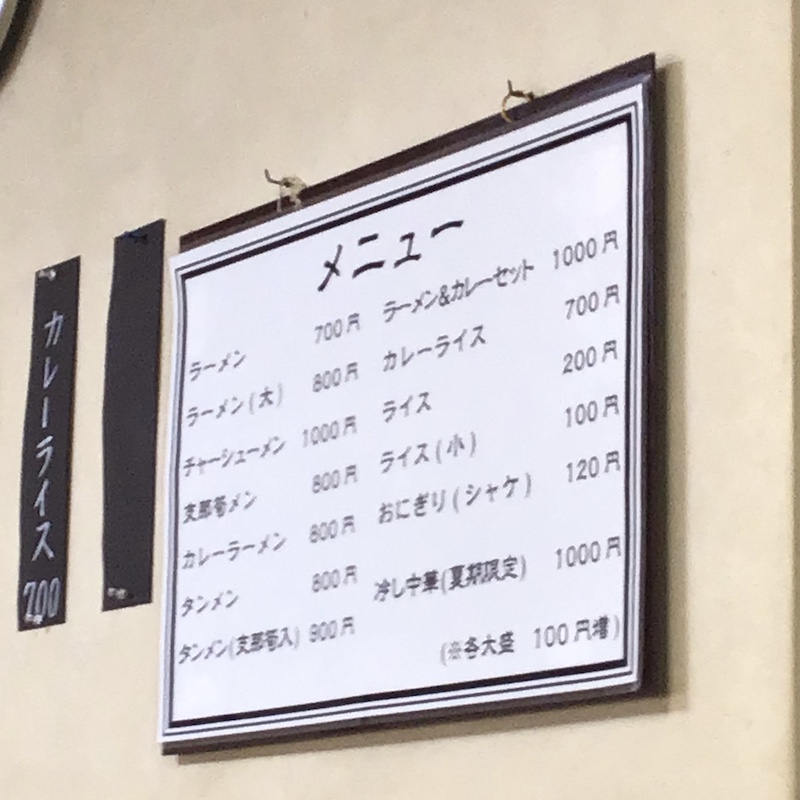 カレーライス 700
メニュー
ラーメン 700円
ラーメン(大) 800円
チャーシューメン 1000円
支那筍メン 800円
カレーラーメン 800円
タンメン 800円
タンメン(支那筍入) 900円
ラーメン&カレーセット 1000円
カレーライス 700円
ライス 200円
ライス(小) 100円
おにぎり(シャケ) 120円
冷し中華(夏期限定) 1000円
(※各大盛 100円増)